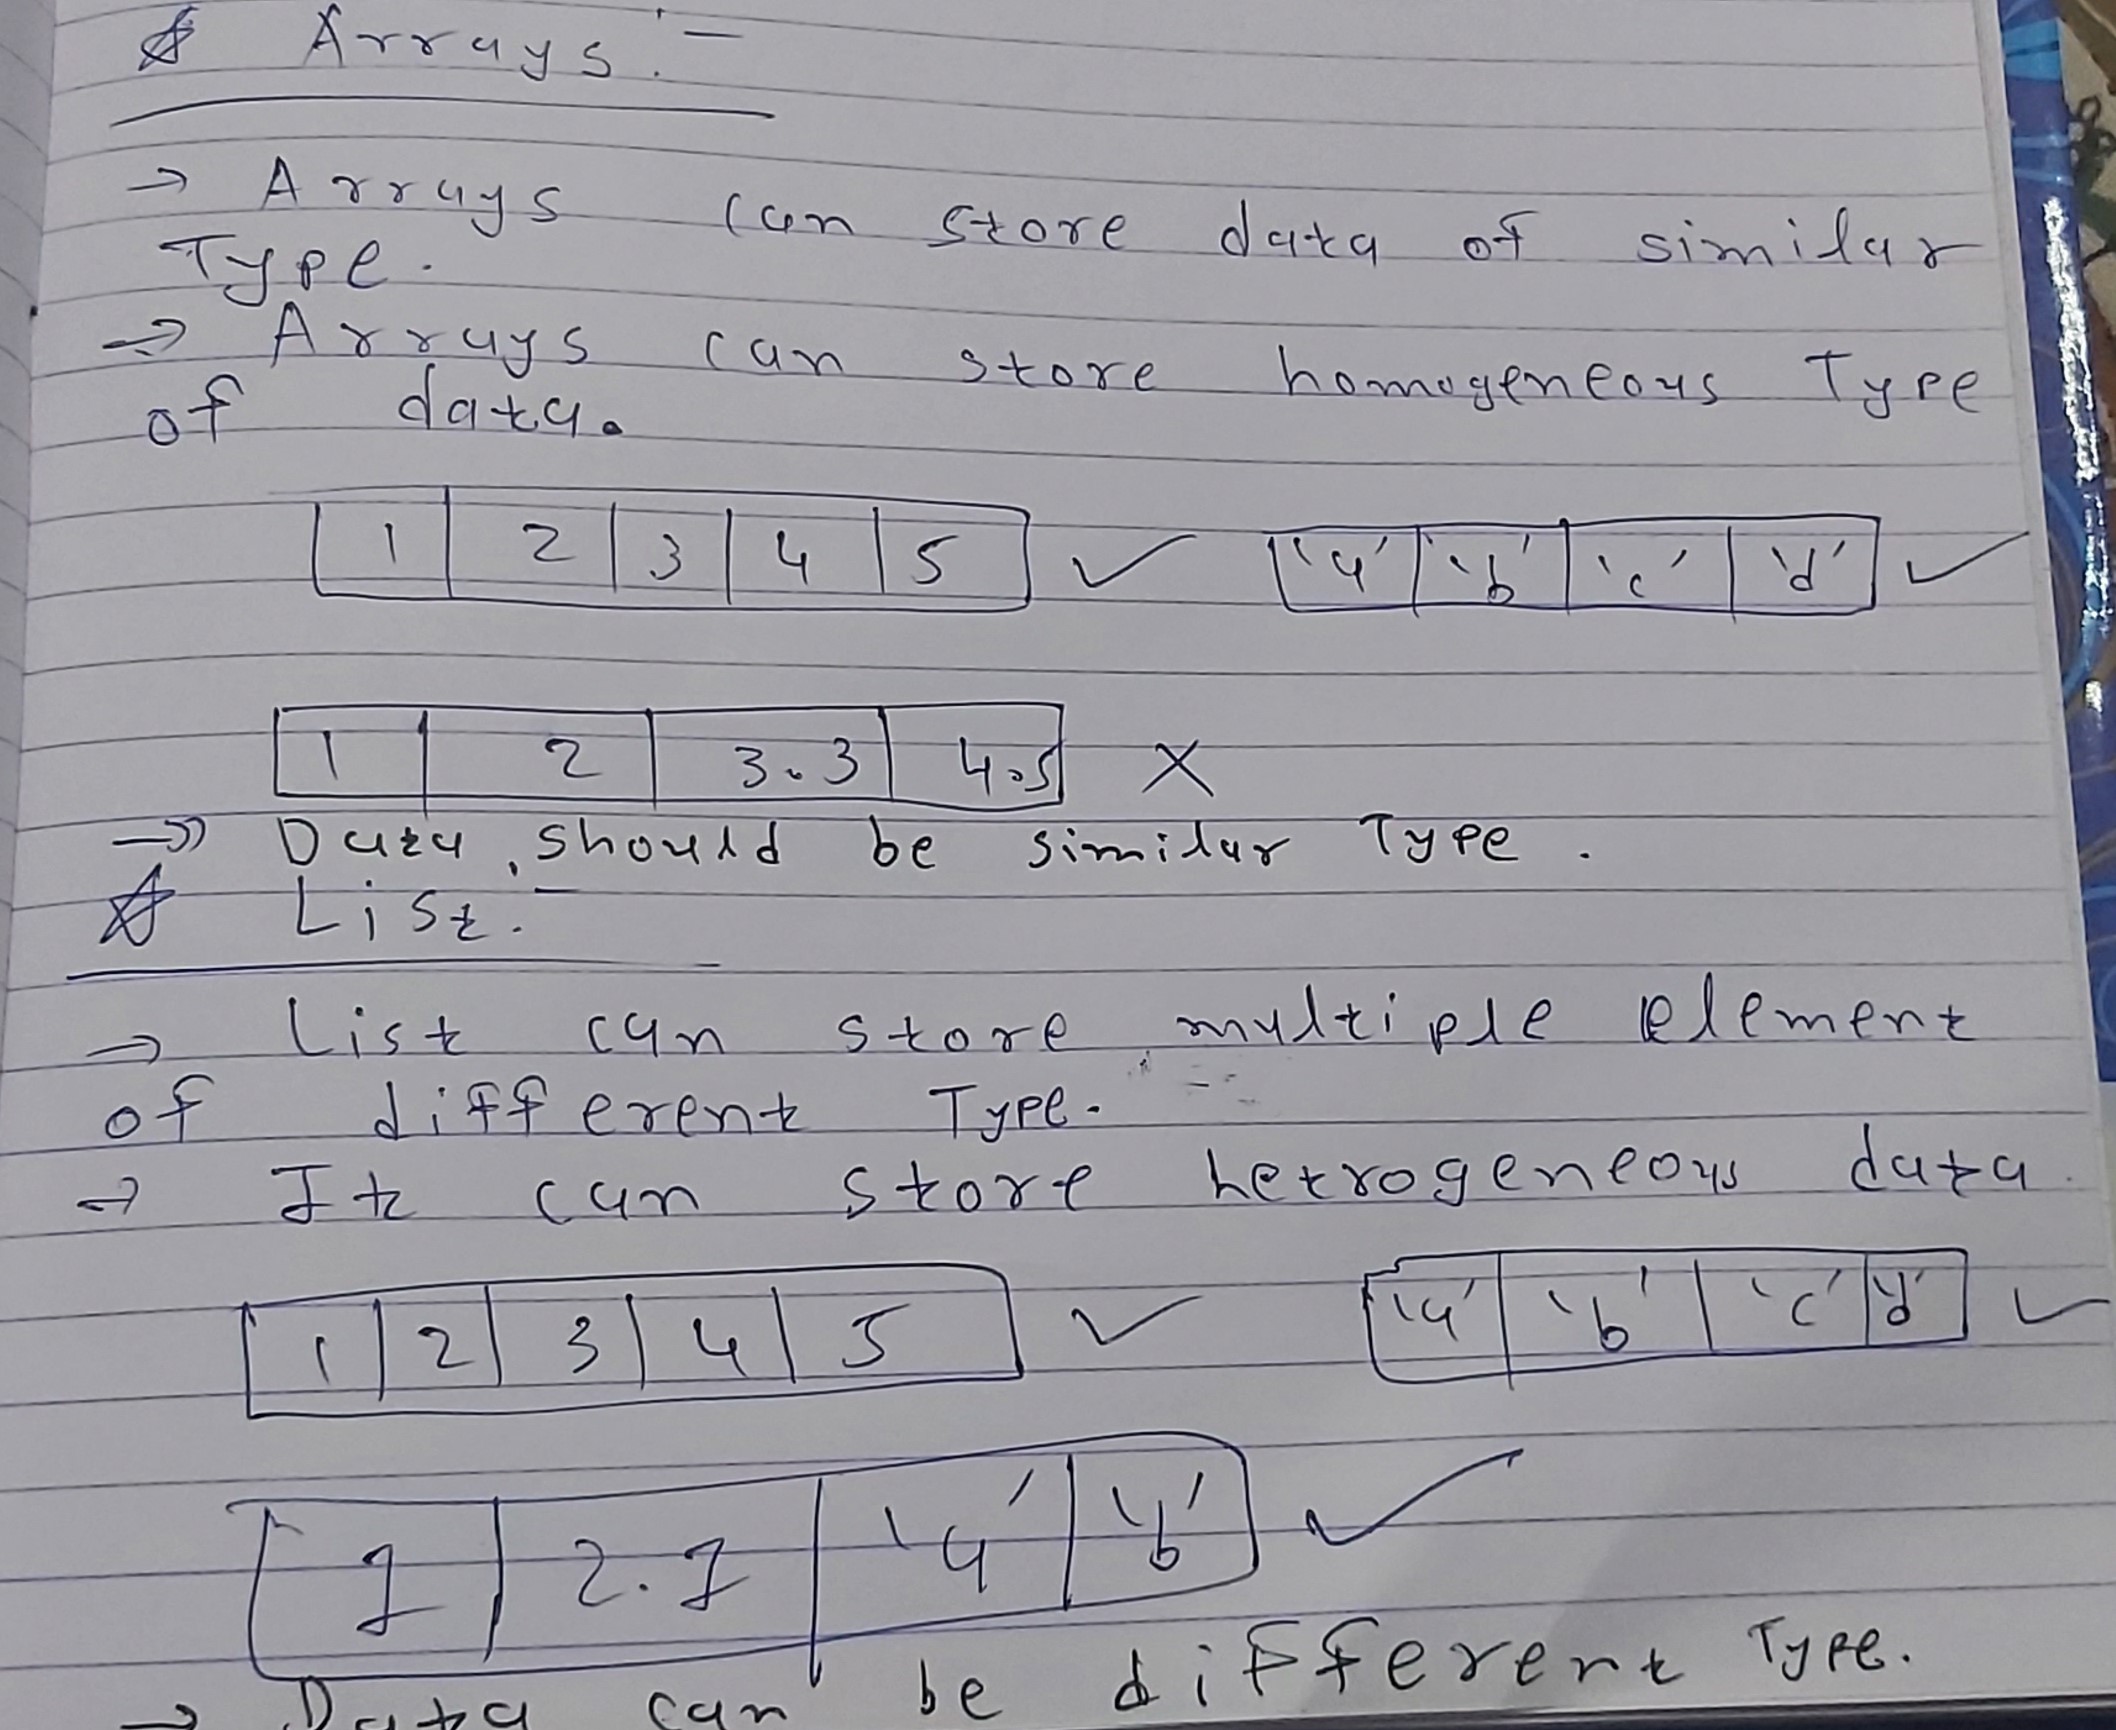 Arrays :-
→ Arrays can store data of similar
Type.
→ Arrays can store homogeneous Type
of data.
1 2 3 4 5 ✓ 'a' 'b' 'c' 'd' ✓
1 2 3.3 4.5 X
→ Data should be similar Type.
List:-
→ List can store multiple element
of different Type.
→ It can store hetrogeneous data.
1 2 3 4 5 ✓ 'a' 'b' 'c' 'd' ✓
1 2.1 'a' 'b' ✓
→ Data can be different Type.